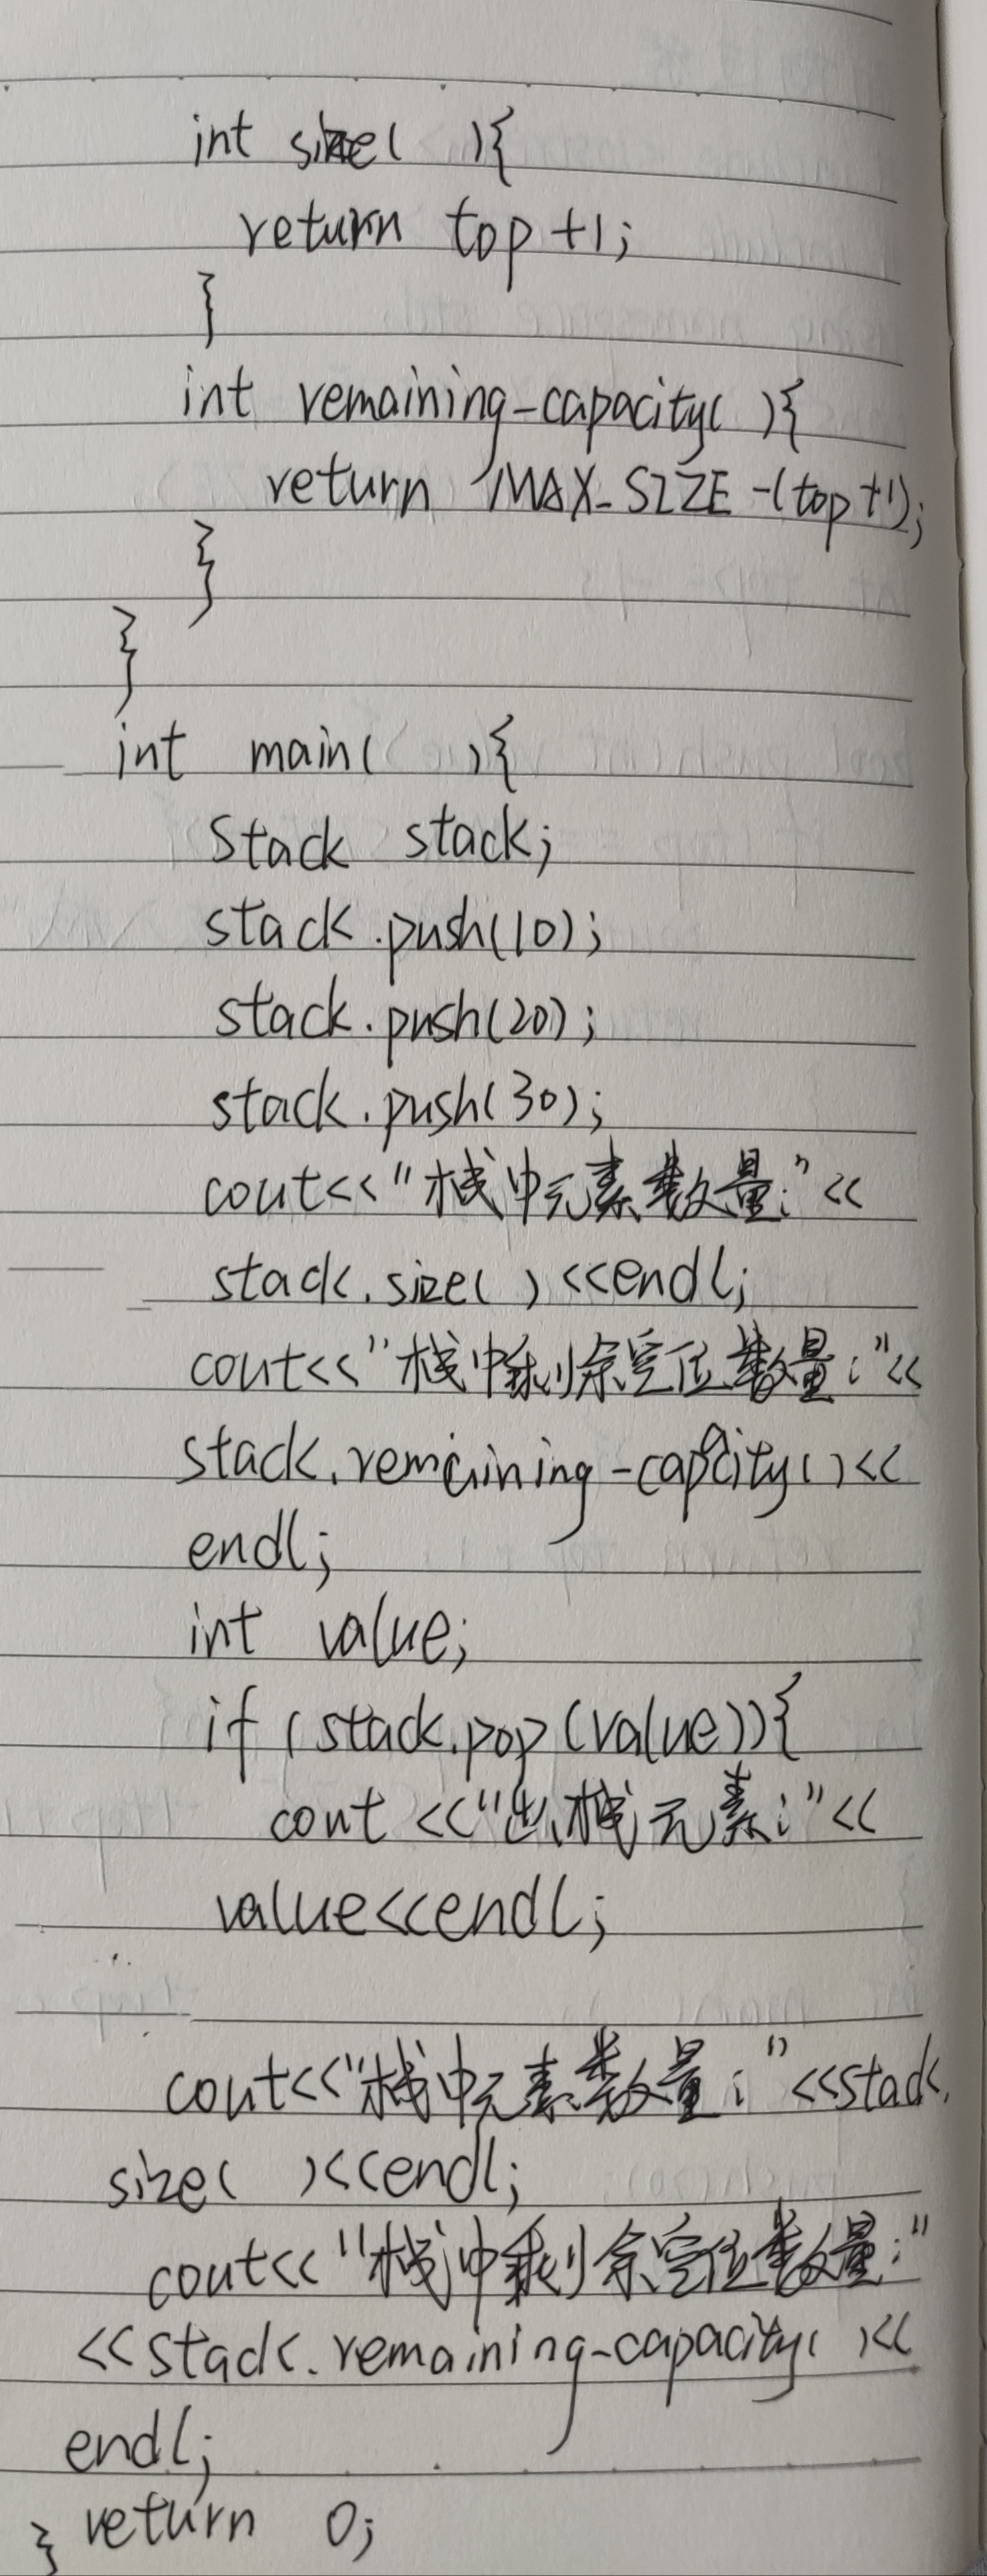 int size( ){
return top+1;
}
int remaining-capacity( ){
return MAX_SIZE-(top+1);
}
}
int main( ){
Stack stack;
stack.push(10);
stack.push(20);
stack.push(30);
cout<<"栈中元素数量:"<<
stack.size( )<<endl;
cout<<"栈中剩余空位数量:"<<
stack.remaining-capacity()<<
endl;
int value;
if (stack.pop(value)){
cout <<"出栈元素:"<<
value<<endl;
cout<<"栈中元素数量:"<<stack.
size( )<<endl;
cout<<"栈中剩余空位数量:"
<<stack.remaining-capacity( )<<
endl;
} return 0;